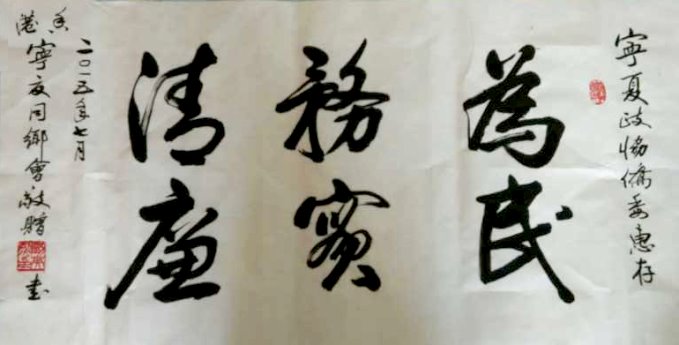 寧夏政协僑委惠存
為民
務實
清廉
二〇一五年七月
香港寧夏同鄉會敬贈
書